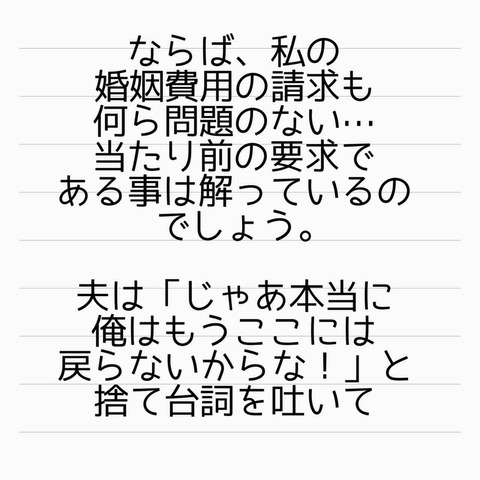 ならば、私の
婚姻費用の請求も
何ら問題のない…
当たり前の要求で
ある事は解っているの
でしょう。
夫は「じゃあ本当に
俺はもうここには
戻らないからな！」と
捨て台詞を吐いて